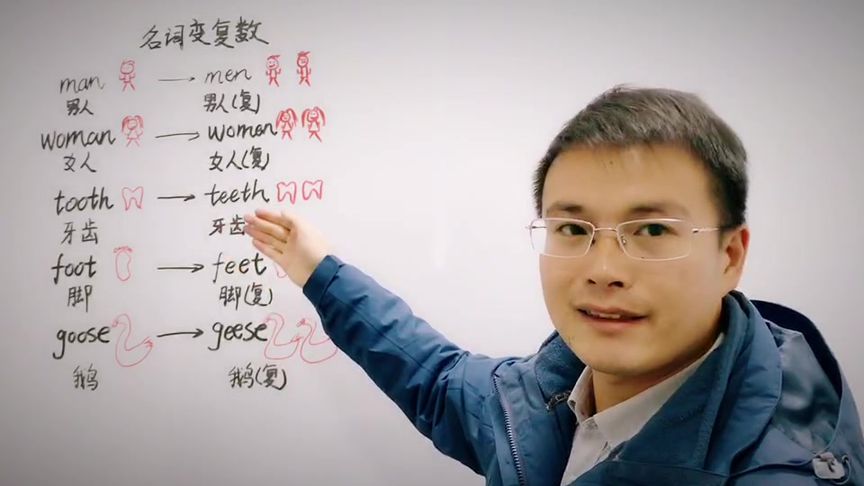 名词变复数
man → men
男人 男人(复)
woman → women
女人 女人(复)
tooth → teeth
牙齿 牙齿
foot → feet
脚 脚(复)
goose → geese
鹅 鹅(复)